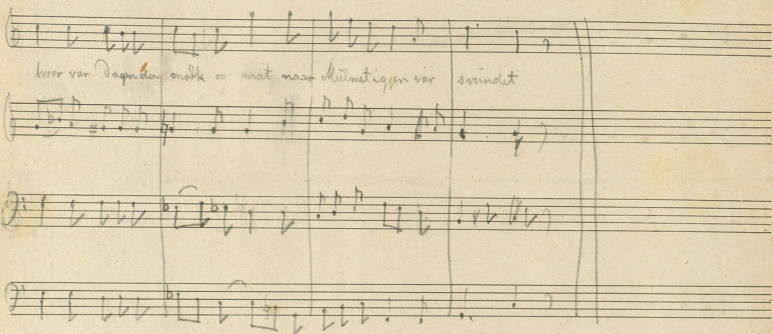 hvor var Dagen da mörk og mat naar Mulmetigjen var svundet